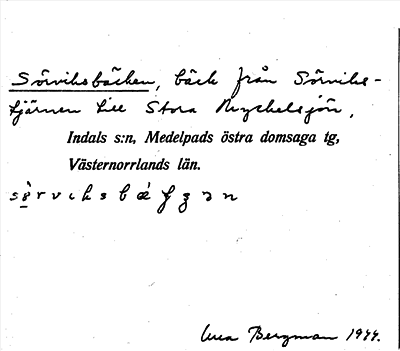 Sörviksbäcken, bäck från Sörviks-
tjärnen till Stora Myckelsjön,
Indals s:n, Medelpads östra domsaga tg,
Västernorrlands län.
Bergman 1944.